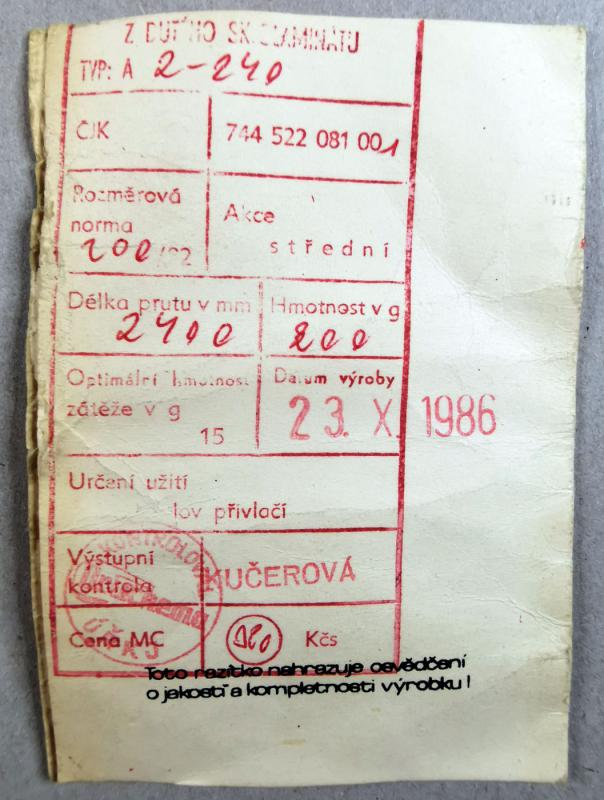 Z DUTÉHO SKLOLAMINÁTU
TYP: A 2-240
ČJK 744 522 081 001
Rozměrová norma 200/82
Akce střední
Délka prutu v mm 2400
Hmotnost v g 200
Optimální hmotnost zátěže v g 15
Datum výroby 23. X. 1986
Určení užití
lov přívlačí
Výstupní kontrola KUČEROVÁ
KONTROLOVAL
Cena MC Kčs
Toto razítko nahrazuje osvědčení
o jakosti a kompletnosti výrobku!